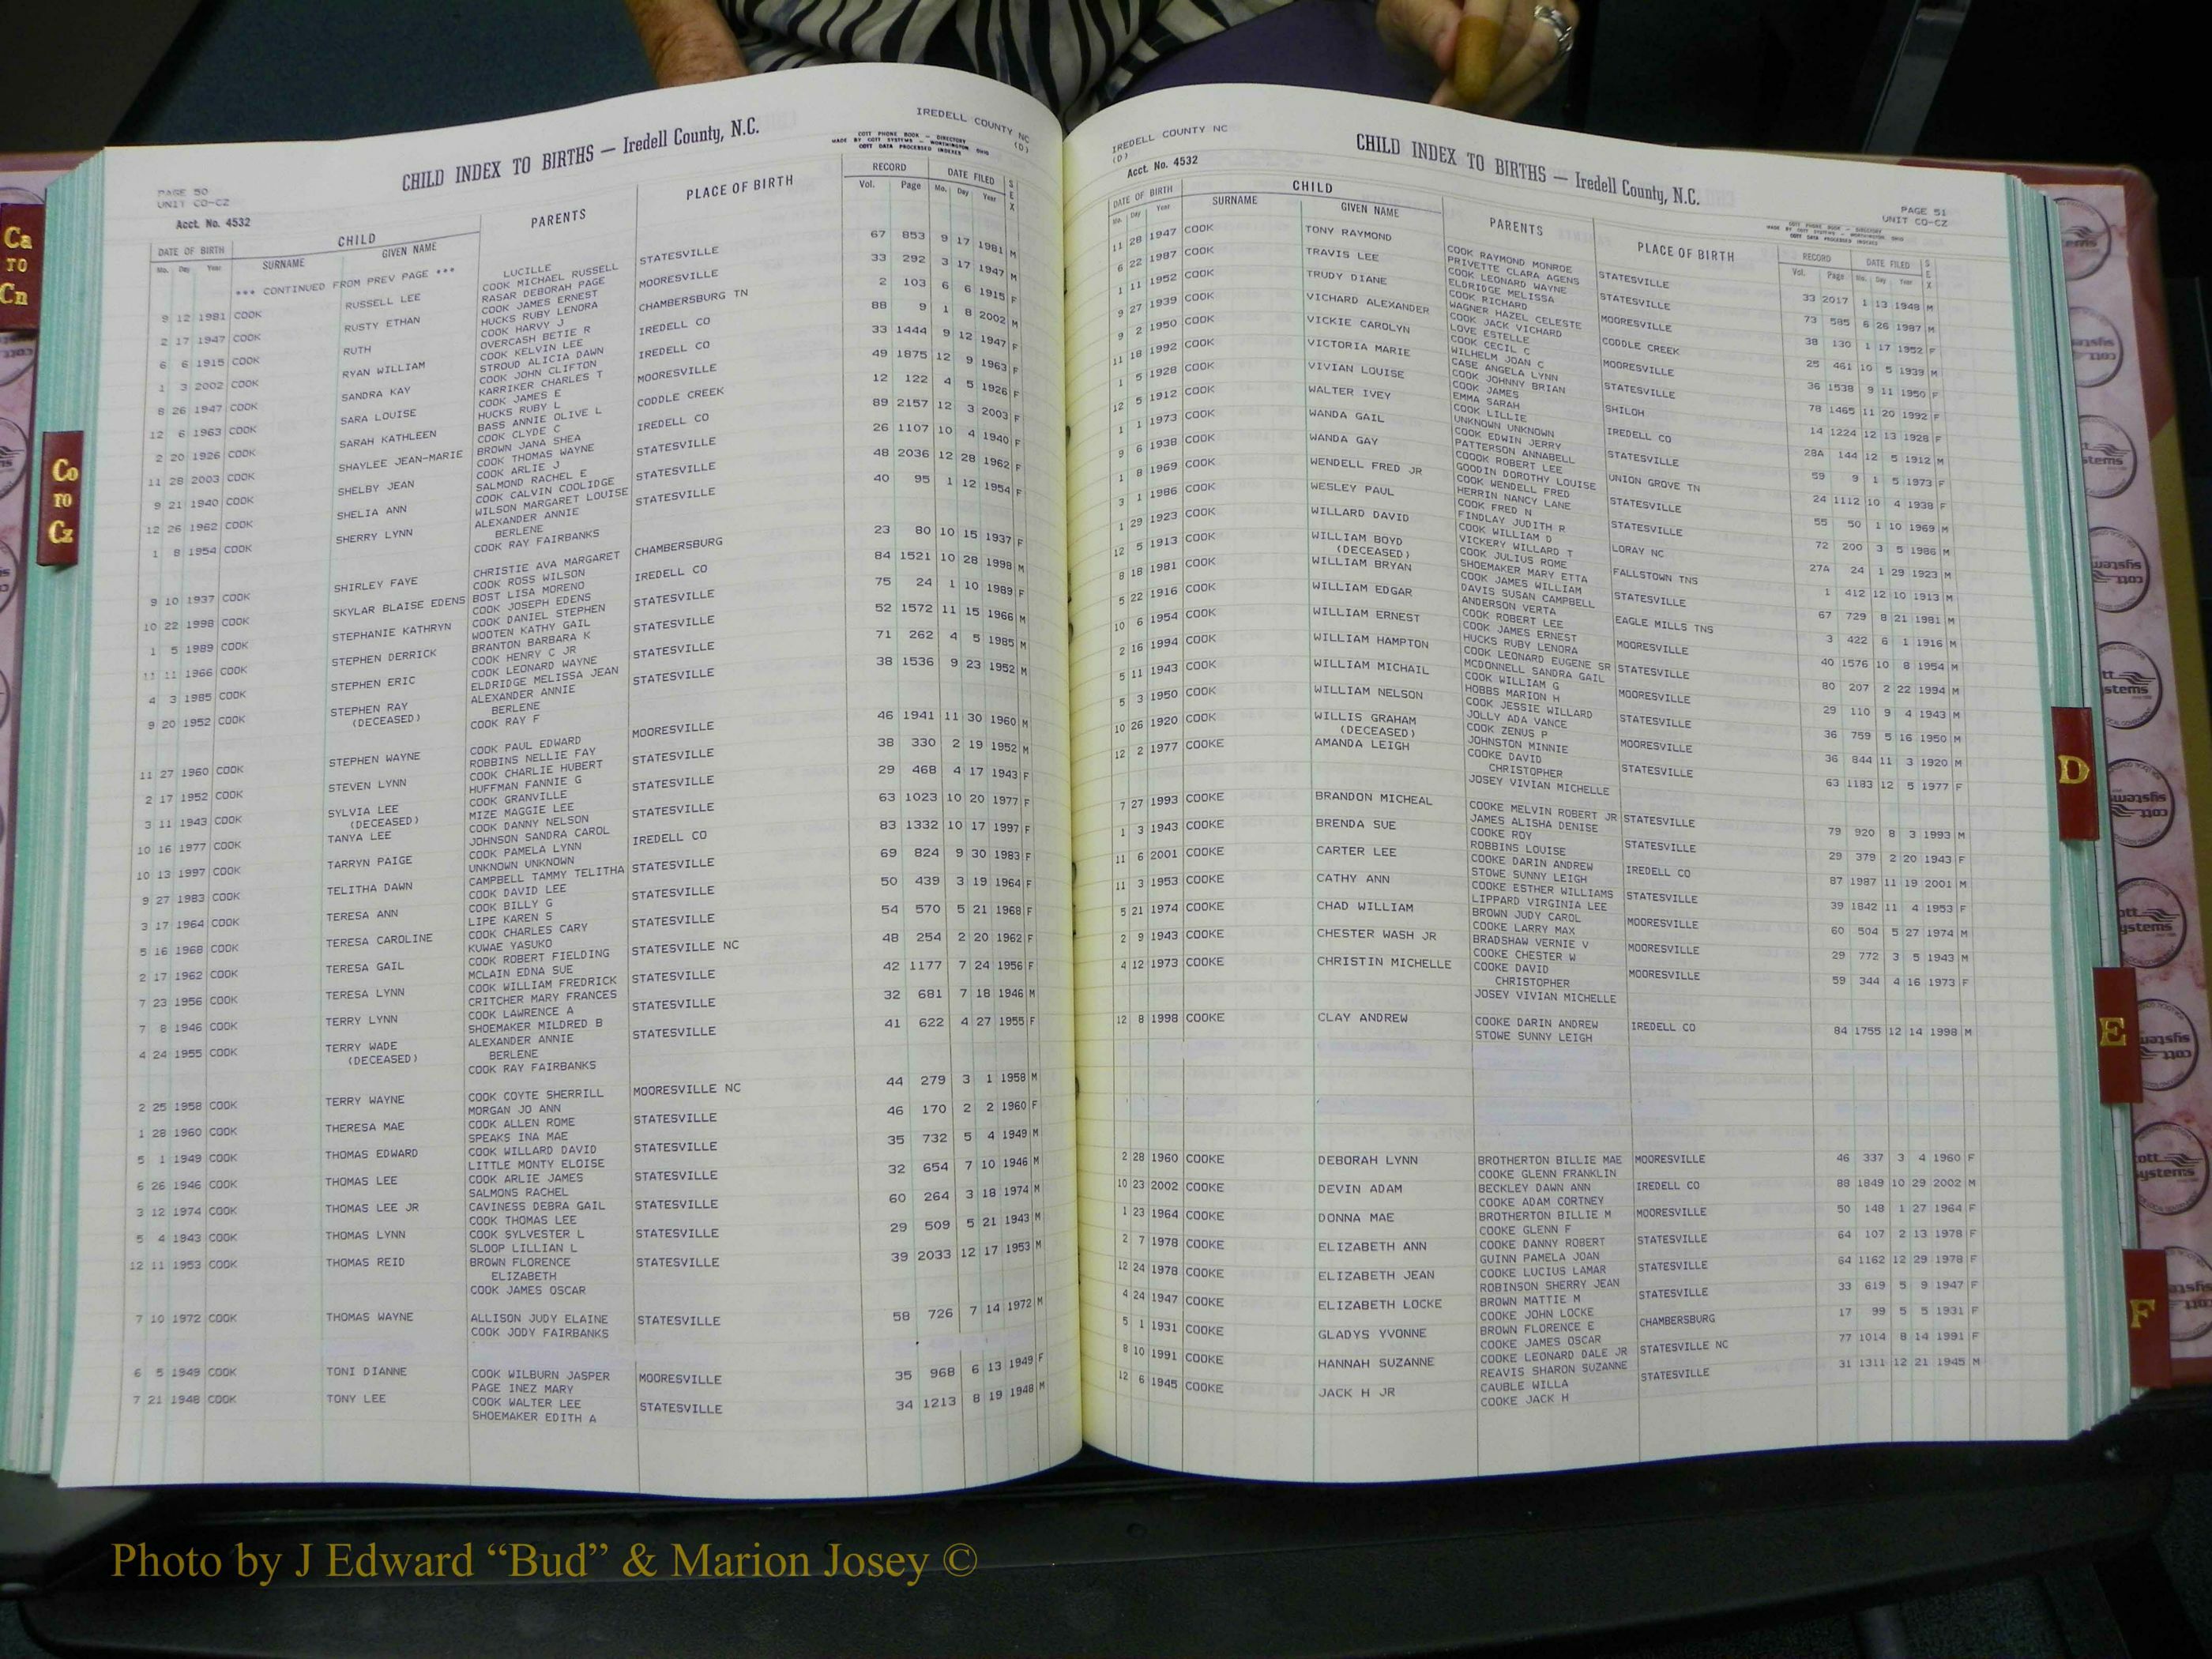 PAGE 50
UNIT CO-CZ
Acct. No. 4532
CHILD INDEX TO BIRTHS — Iredell County, N.C.
IREDELL COUNTY NC
(D)
COTT PHONE BOOK — DIRECTORY
MADE BY COTT SYSTEMS — WORTHINGTON, OHIO
COTT DATA PROCESSED INDEXES
DATE OF BIRTH CHILD PARENTS PLACE OF BIRTH RECORD DATE FILED SEX
Mo. Day Year SURNAME GIVEN NAME Vol. Page Mo. Day Year
*** CONTINUED FROM PREV PAGE *** LUCILLE
9 12 1981 COOK RUSSELL LEE COOK MICHAEL RUSSELL STATESVILLE 67 853 9 17 1981 M
RASAR DEBORAH PAGE
2 17 1947 COOK RUSTY ETHAN COOK JAMES ERNEST MOORESVILLE 33 292 3 17 1947 M
HUCKS RUBY LENORA
6 6 1915 COOK RUTH COOK HARVY J CHAMBERSBURG TN 2 103 6 6 1915 F
OVERCASH BETIE R
1 3 2002 COOK RYAN WILLIAM COOK KELVIN LEE IREDELL CO 88 9 1 8 2002 M
STROUD ALICIA DAWN
8 26 1947 COOK SANDRA KAY COOK JOHN CLIFTON IREDELL CO 33 1444 9 12 1947 F
KARRIKER CHARLES T
12 6 1963 COOK SARA LOUISE COOK JAMES E MOORESVILLE 49 1875 12 9 1963 F
HUCKS RUBY L
2 20 1926 COOK SARAH KATHLEEN BASS ANNIE OLIVE L CODDLE CREEK 12 122 4 5 1926 F
COOK CLYDE C
11 28 2003 COOK SHAYLEE JEAN-MARIE BROWN JANA SHEA IREDELL CO 89 2157 12 3 2003 F
COOK THOMAS WAYNE
9 21 1940 COOK SHELBY JEAN COOK ARLIE J STATESVILLE 26 1107 10 4 1940 F
SALMOND RACHEL E
12 26 1962 COOK SHELIA ANN COOK CALVIN COOLIDGE STATESVILLE 48 2036 12 28 1962 F
WILSON MARGARET LOUISE
1 8 1954 COOK SHERRY LYNN ALEXANDER ANNIE STATESVILLE 40 95 1 12 1954 F
BERLENE
COOK RAY FAIRBANKS
9 10 1937 COOK SHIRLEY FAYE CHRISTIE AVA MARGARET CHAMBERSBURG 23 80 10 15 1937 F
COOK ROSS WILSON
10 22 1998 COOK SKYLAR BLAISE EDENS BOST LISA MORENO IREDELL CO 84 1521 10 28 1998 M
COOK JOSEPH EDENS
1 5 1989 COOK STEPHANIE KATHRYN COOK DANIEL STEPHEN STATESVILLE 75 24 1 10 1989 F
WOOTEN KATHY GAIL
11 11 1966 COOK STEPHEN DERRICK BRANTON BARBARA K STATESVILLE 52 1572 11 15 1966 M
COOK HENRY C JR
4 3 1985 COOK STEPHEN ERIC COOK LEONARD WAYNE STATESVILLE 71 262 4 5 1985 M
ELDRIDGE MELISSA JEAN
9 20 1952 COOK STEPHEN RAY ALEXANDER ANNIE STATESVILLE 38 1536 9 23 1952 M
(DECEASED) BERLENE
COOK RAY F
11 27 1960 COOK STEPHEN WAYNE COOK PAUL EDWARD MOORESVILLE 46 1941 11 30 1960 M
ROBBINS NELLIE FAY
2 17 1952 COOK STEVEN LYNN COOK CHARLIE HUBERT STATESVILLE 38 330 2 19 1952 M
HUFFMAN FANNIE G
3 11 1943 COOK SYLVIA LEE COOK GRANVILLE STATESVILLE 29 468 4 17 1943 F
(DECEASED) MIZE MAGGIE LEE
10 16 1977 COOK TANYA LEE COOK DANNY NELSON STATESVILLE 63 1023 10 20 1977 F
JOHNSON SANDRA CAROL
10 13 1997 COOK TARRYN PAIGE COOK PAMELA LYNN IREDELL CO 83 1332 10 17 1997 F
UNKNOWN UNKNOWN
9 27 1983 COOK TELITHA DAWN CAMPBELL TAMMY TELITHA STATESVILLE 69 824 9 30 1983 F
COOK DAVID LEE
3 17 1964 COOK TERESA ANN COOK BILLY G STATESVILLE 50 439 3 19 1964 F
LIPE KAREN S
5 16 1968 COOK TERESA CAROLINE COOK CHARLES CARY STATESVILLE 54 570 5 21 1968 F
KUWAE YASUKO
2 17 1962 COOK TERESA GAIL COOK ROBERT FIELDING STATESVILLE NC 48 254 2 20 1962 F
MCLAIN EDNA SUE
7 23 1956 COOK TERESA LYNN COOK WILLIAM FREDRICK STATESVILLE 42 1177 7 24 1956 F
CRITCHER MARY FRANCES
7 8 1946 COOK TERRY LYNN COOK LAWRENCE A STATESVILLE 32 681 7 18 1946 M
SHOEMAKER MILDRED B
4 24 1955 COOK TERRY WADE ALEXANDER ANNIE STATESVILLE 41 622 4 27 1955 F
(DECEASED) BERLENE
COOK RAY FAIRBANKS
2 25 1958 COOK TERRY WAYNE COOK COYTE SHERRILL MOORESVILLE NC 44 279 3 1 1958 M
MORGAN JO ANN
1 28 1960 COOK THERESA MAE COOK ALLEN ROME STATESVILLE 46 170 2 2 1960 F
SPEAKS INA MAE
5 1 1949 COOK THOMAS EDWARD COOK WILLARD DAVID STATESVILLE 35 732 5 4 1949 M
LITTLE MONTY ELOISE
6 26 1946 COOK THOMAS LEE COOK ARLIE JAMES STATESVILLE 32 654 7 10 1946 M
SALMONS RACHEL
3 12 1974 COOK THOMAS LEE JR CAVINESS DEBRA GAIL STATESVILLE 60 264 3 18 1974 M
COOK THOMAS LEE
5 4 1943 COOK THOMAS LYNN COOK SYLVESTER L STATESVILLE 29 509 5 21 1943 M
SLOOP LILLIAN L
12 11 1953 COOK THOMAS REID BROWN FLORENCE STATESVILLE 39 2033 12 17 1953 M
ELIZABETH
COOK JAMES OSCAR
7 10 1972 COOK THOMAS WAYNE ALLISON JUDY ELAINE STATESVILLE 58 726 7 14 1972 M
COOK JODY FAIRBANKS
6 5 1949 COOK TONI DIANNE COOK WILBURN JASPER MOORESVILLE 35 968 6 13 1949 F
PAGE INEZ MARY
7 21 1948 COOK TONY LEE COOK WALTER LEE STATESVILLE 34 1213 8 19 1948 M
SHOEMAKER EDITH A
IREDELL COUNTY NC
(D)
Acct. No. 4532
CHILD INDEX TO BIRTHS — Iredell County, N.C.
PAGE 51
UNIT CO-CZ
COTT PHONE BOOK — DIRECTORY
MADE BY COTT SYSTEMS — WORTHINGTON, OHIO
COTT DATA PROCESSED INDEXES
DATE OF BIRTH CHILD PARENTS PLACE OF BIRTH RECORD DATE FILED SEX
Mo. Day Year SURNAME GIVEN NAME Vol. Page Mo. Day Year
11 28 1947 COOK TONY RAYMOND COOK RAYMOND MONROE STATESVILLE 33 2017 1 13 1948 M
PRIVETTE CLARA AGENS
6 22 1987 COOK TRAVIS LEE COOK LEONARD WAYNE STATESVILLE 73 585 6 26 1987 M
ELDRIDGE MELISSA
1 11 1952 COOK TRUDY DIANE COOK RICHARD MOORESVILLE 38 130 1 17 1952 F
WAGNER HAZEL CELESTE
9 27 1939 COOK VICHARD ALEXANDER COOK JACK VICHARD CODDLE CREEK 25 461 10 5 1939 M
LOVE ESTELLE
9 2 1950 COOK VICKIE CAROLYN COOK CECIL C MOORESVILLE 36 1538 9 11 1950 F
WILHELM JOAN C
11 18 1992 COOK VICTORIA MARIE CASE ANGELA LYNN STATESVILLE 78 1465 11 20 1992 F
COOK JOHNNY BRIAN
1 5 1928 COOK VIVIAN LOUISE COOK JAMES SHILOH 14 1224 12 13 1928 F
EMMA SARAH
12 5 1912 COOK WALTER IVEY COOK LILLIE IREDELL CO 28A 144 12 5 1912 M
UNKNOWN UNKNOWN
1 1 1973 COOK WANDA GAIL COOK EDWIN JERRY STATESVILLE 59 9 1 5 1973 F
PATTERSON ANNABELL
9 6 1938 COOK WANDA GAY COOOK ROBERT LEE UNION GROVE TN 24 1112 10 4 1938 F
GOODIN DOROTHY LOUISE
1 8 1969 COOK WENDELL FRED JR COOK WENDELL FRED STATESVILLE 55 50 1 10 1969 M
HERRIN NANCY LANE
3 1 1986 COOK WESLEY PAUL COOK FRED N STATESVILLE 72 200 3 5 1986 M
FINDLAY JUDITH R
1 29 1923 COOK WILLARD DAVID COOK WILLIAM D LORAY NC 27A 24 1 29 1923 M
VICKERY WILLARD T
12 5 1913 COOK WILLIAM BOYD COOK JULIUS ROME FALLSTOWN TNS 1 412 12 10 1913 M
(DECEASED) SHOEMAKER MARY ETTA
8 18 1981 COOK WILLIAM BRYAN COOK JAMES WILLIAM STATESVILLE 67 729 8 21 1981 M
DAVIS SUSAN CAMPBELL
5 22 1916 COOK WILLIAM EDGAR ANDERSON VERTA EAGLE MILLS TNS 3 422 6 1 1916 M
COOK ROBERT LEE
10 6 1954 COOK WILLIAM ERNEST COOK JAMES ERNEST MOORESVILLE 40 1576 10 8 1954 M
HUCKS RUBY LENORA
2 16 1994 COOK WILLIAM HAMPTON COOK LEONARD EUGENE SR STATESVILLE 80 207 2 22 1994 M
MCDONNELL SANDRA GAIL
5 11 1943 COOK WILLIAM MICHAIL COOK WILLIAM G MOORESVILLE 29 110 9 4 1943 M
HOBBS MARION H
5 3 1950 COOK WILLIAM NELSON COOK JESSIE WILLARD STATESVILLE 36 759 5 16 1950 M
JOLLY ADA VANCE
10 26 1920 COOK WILLIS GRAHAM COOK ZENUS P MOORESVILLE 36 844 11 3 1920 M
(DECEASED) JOHNSTON MINNIE
12 2 1977 COOKE AMANDA LEIGH COOKE DAVID STATESVILLE 63 1183 12 5 1977 F
CHRISTOPHER
JOSEY VIVIAN MICHELLE
7 27 1993 COOKE BRANDON MICHEAL COOKE MELVIN ROBERT JR STATESVILLE 79 920 8 3 1993 M
JAMES ALISHA DENISE
1 3 1943 COOKE BRENDA SUE COOKE ROY STATESVILLE 29 379 2 20 1943 F
ROBBINS LOUISE
11 6 2001 COOKE CARTER LEE COOKE DARIN ANDREW IREDELL CO 87 1987 11 19 2001 M
STOWE SUNNY LEIGH
11 3 1953 COOKE CATHY ANN COOKE ESTHER WILLIAMS STATESVILLE 39 1842 11 4 1953 F
LIPPARD VIRGINIA LEE
5 21 1974 COOKE CHAD WILLIAM BROWN JUDY CAROL MOORESVILLE 60 504 5 27 1974 M
COOKE LARRY MAX
2 9 1943 COOKE CHESTER WASH JR BRADSHAW VERNIE V MOORESVILLE 29 772 3 5 1943 M
COOKE CHESTER W
4 12 1973 COOKE CHRISTIN MICHELLE COOKE DAVID MOORESVILLE 59 344 4 16 1973 F
CHRISTOPHER
JOSEY VIVIAN MICHELLE
12 8 1998 COOKE CLAY ANDREW COOKE DARIN ANDREW IREDELL CO 84 1755 12 14 1998 M
STOWE SUNNY LEIGH
2 28 1960 COOKE DEBORAH LYNN BROTHERTON BILLIE MAE MOORESVILLE 46 337 3 4 1960 F
COOKE GLENN FRANKLIN
10 23 2002 COOKE DEVIN ADAM BECKLEY DAWN ANN IREDELL CO 88 1849 10 29 2002 M
COOKE ADAM CORTNEY
1 23 1964 COOKE DONNA MAE BROTHERTON BILLIE M MOORESVILLE 50 148 1 27 1964 F
COOKE GLENN F
2 7 1978 COOKE ELIZABETH ANN COOKE DANNY ROBERT STATESVILLE 64 107 2 13 1978 F
GUINN PAMELA JOAN
12 24 1978 COOKE ELIZABETH JEAN COOKE LUCIUS LAMAR STATESVILLE 64 1162 12 29 1978 F
ROBINSON SHERRY JEAN
4 24 1947 COOKE ELIZABETH LOCKE BROWN MATTIE M STATESVILLE 33 619 5 9 1947 F
COOKE JOHN LOCKE
5 1 1931 COOKE GLADYS YVONNE BROWN FLORENCE E CHAMBERSBURG 17 99 5 5 1931 F
COOKE JAMES OSCAR
8 10 1991 COOKE HANNAH SUZANNE COOKE LEONARD DALE JR STATESVILLE NC 77 1014 8 14 1991 F
REAVIS SHARON SUZANNE
12 6 1945 COOKE JACK H JR CAUBLE WILLA STATESVILLE 31 1311 12 21 1945 M
COOKE JACK H
Ca
TO
Cn
Co
TO
Cz
D
E
F
Photo by J Edward “Bud” & Marion Josey ©